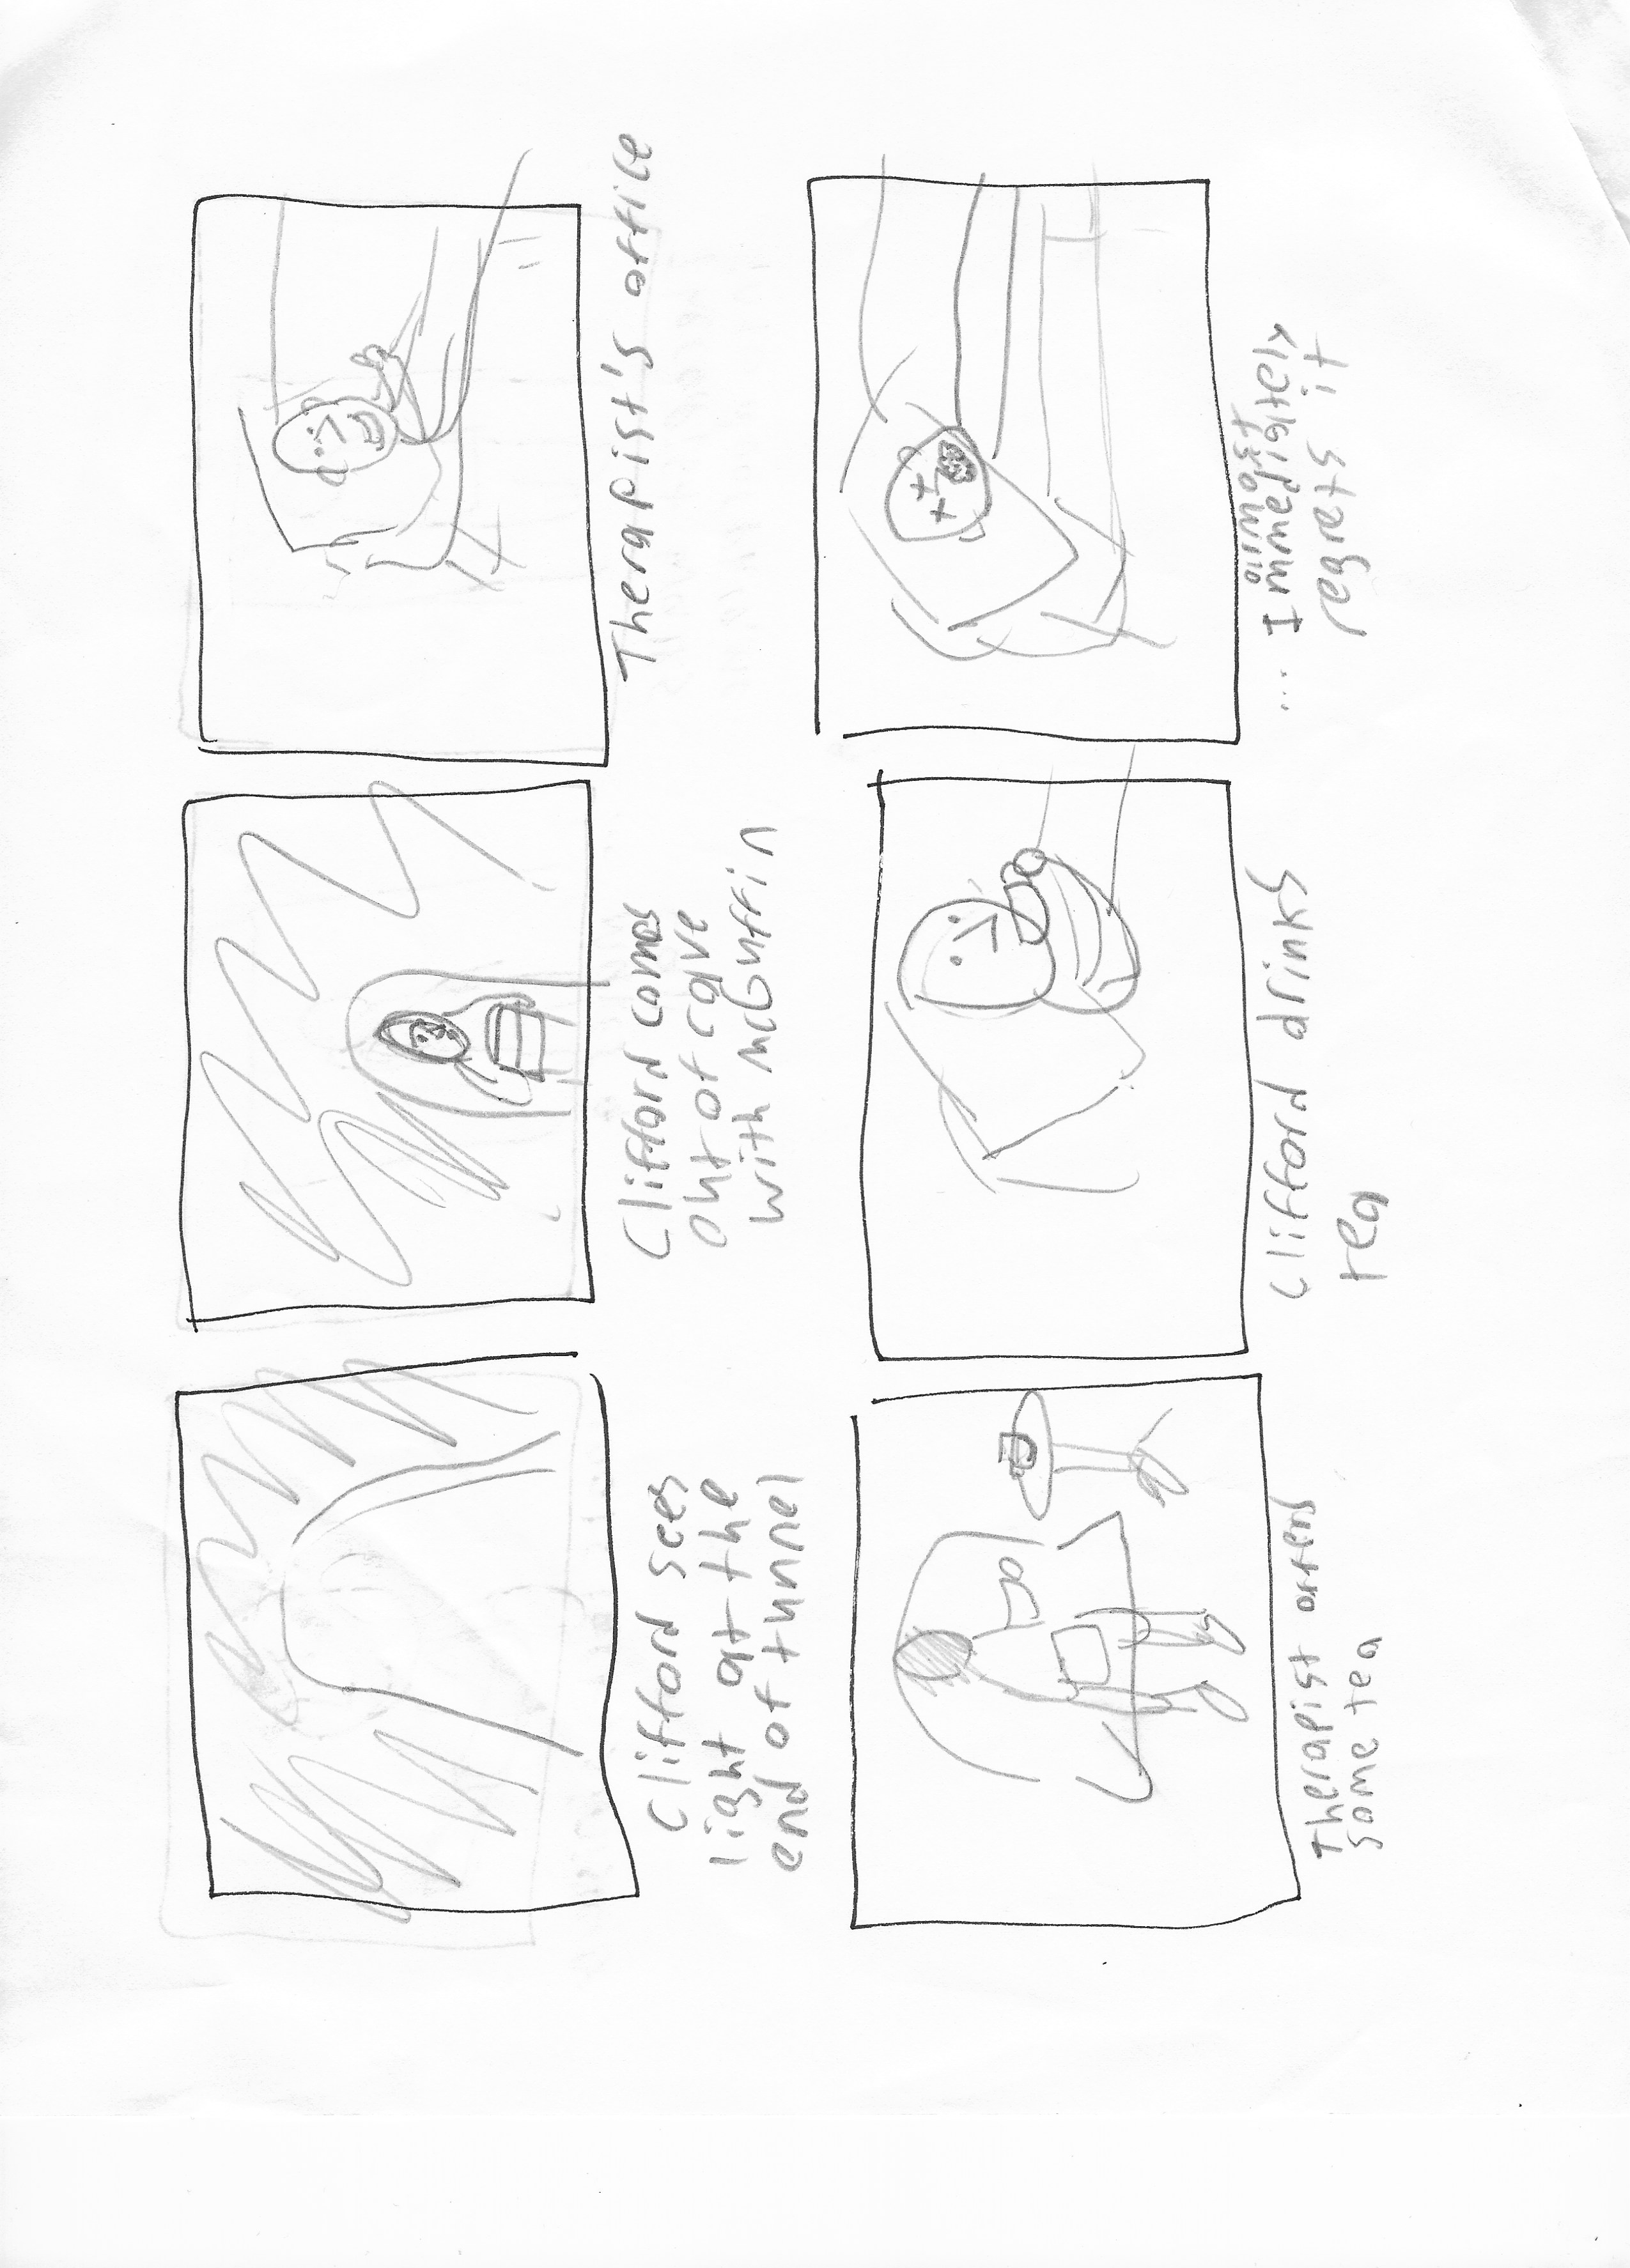 Clifford sees
light at the
end of tunnel
Clifford comes
out of cave
with McGuffin
Therapist's office
Therapist offers
some tea
Clifford drinks
tea
almost
... Immediately
regrets it